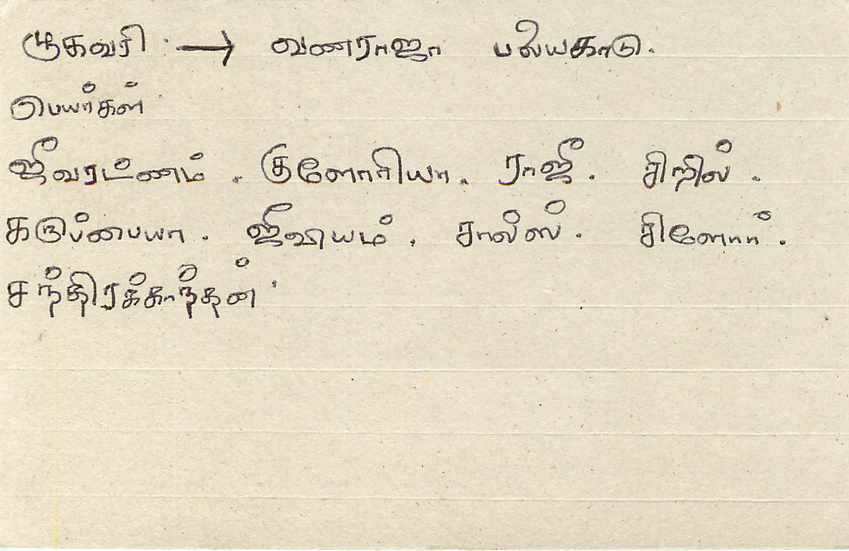 முகவரி → வணராஜா பலியகாடு.
பெயர்கள்
ஜீவரட்ணம். குளோரியா. ராஜீ. சிறில்.
கருப்பையா. ஜீவியம். சால்ஸ். சிளோர்.
சந்திரக்காந்தன்